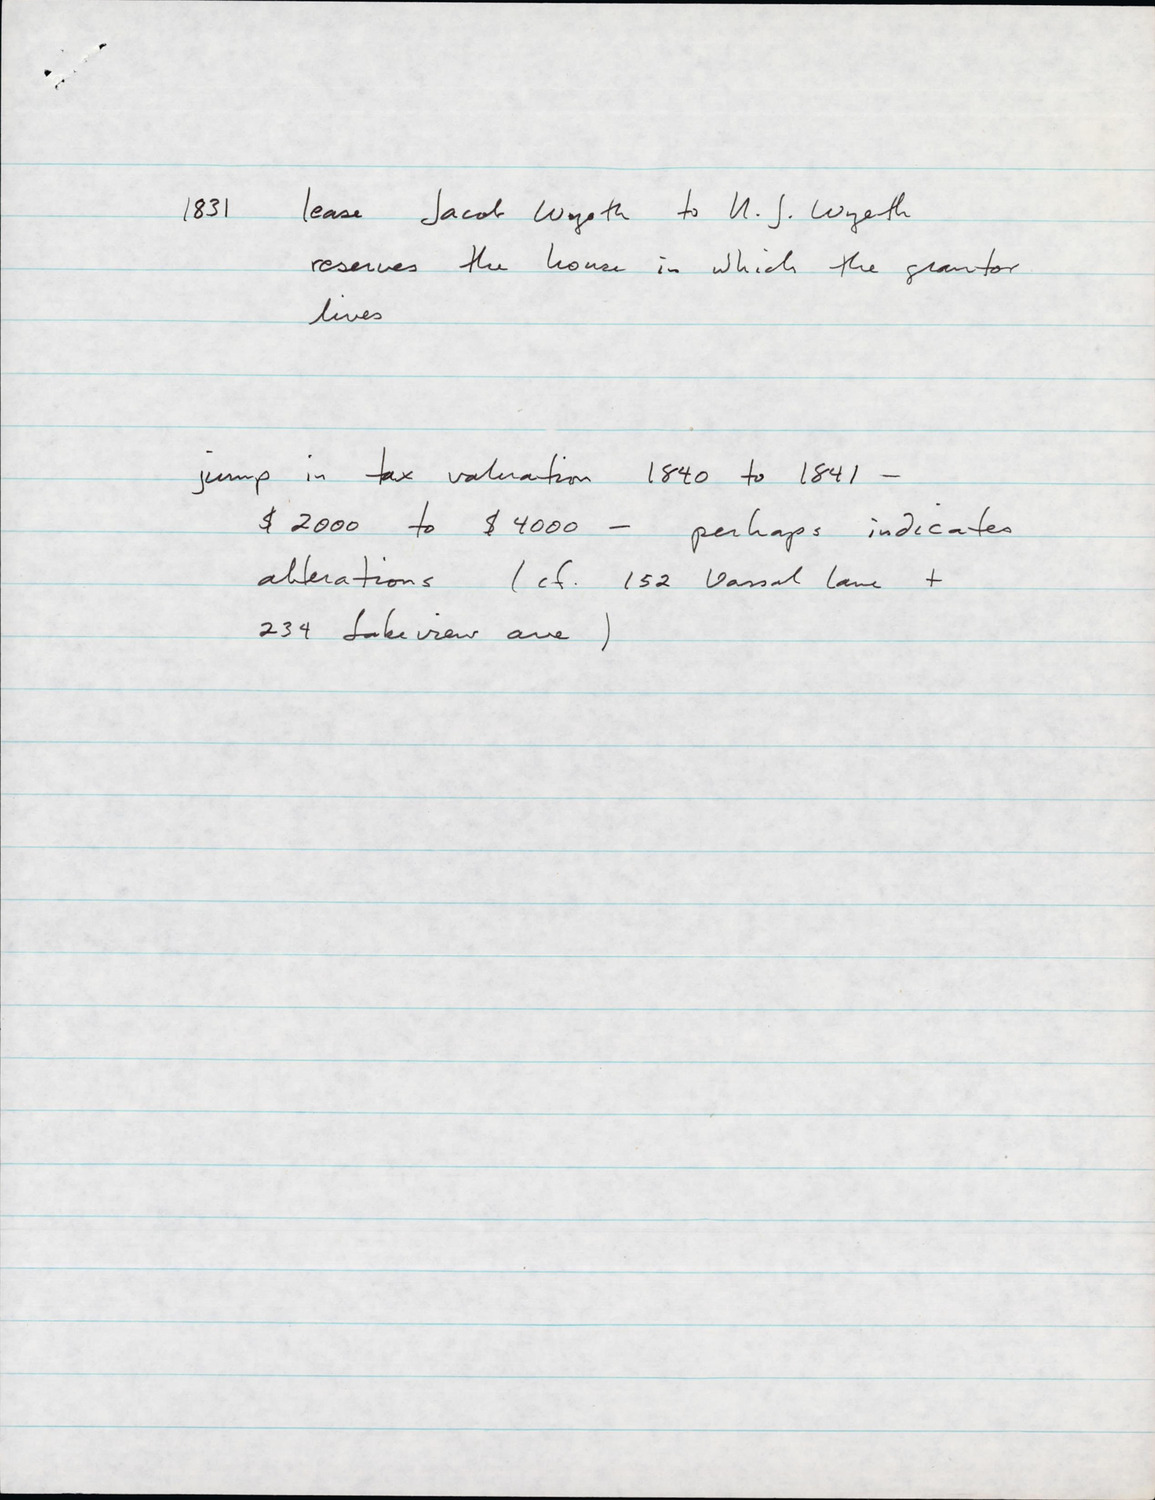 1831 lease Jacob Wyeth to N. J. Wyeth
reserves the house in which the grantor
lives
jump in tax valuation 1840 to 1841 -
$2000 to $4000 - perhaps indicates
alterations (cf. 152 Vassal Lane +
234 Lakeview ave)